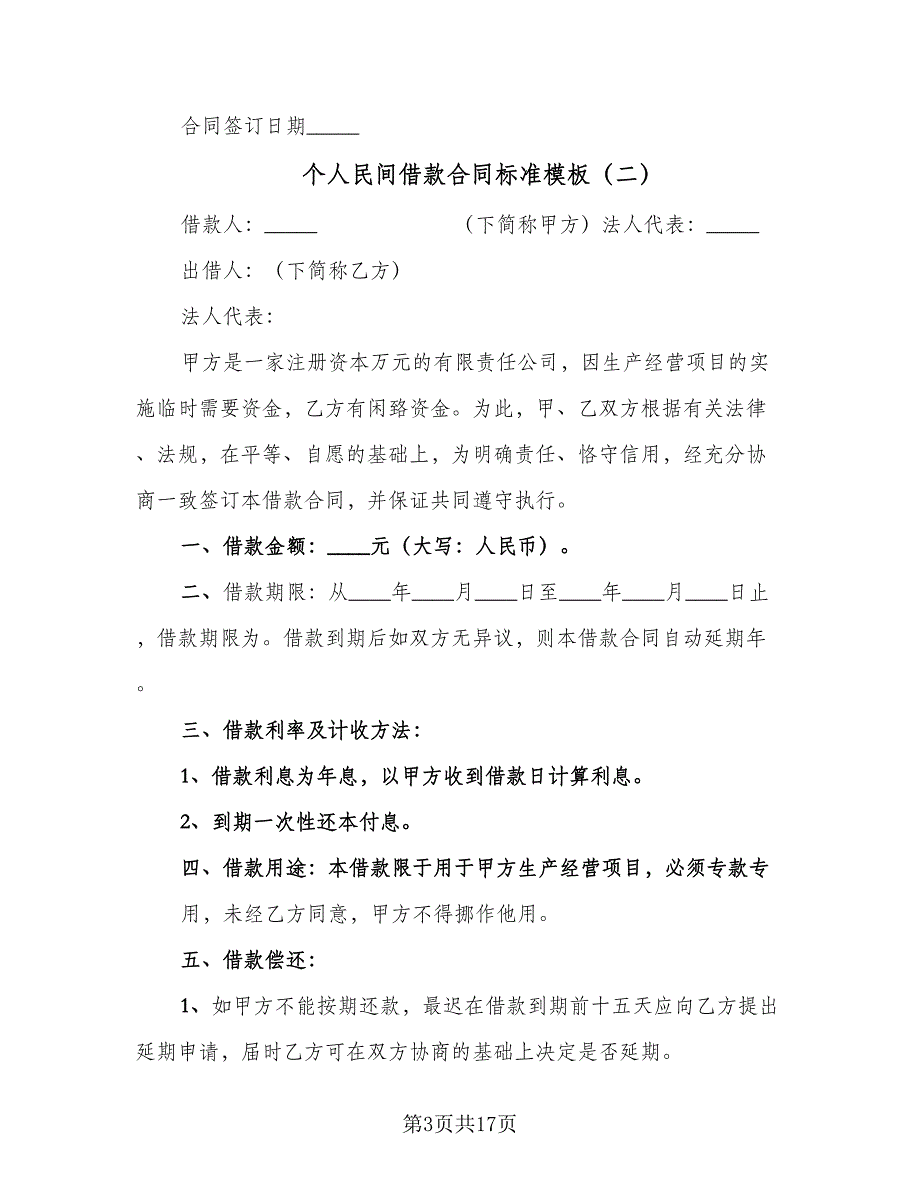 合同签订日期_____
个人民间借款合同标准模板（二）
借款人：_____ （下简称甲方）法人代表：_____
出借人：（下简称乙方）
法人代表：
甲方是一家注册资本万元的有限责任公司，因生产经营项目的实
施临时需要资金，乙方有闲臵资金。为此，甲、乙双方根据有关法律
、法规，在平等、自愿的基础上，为明确责任、恪守信用，经充分协
商一致签订本借款合同，并保证共同遵守执行。
一、借款金额：____元（大写：人民币）。
二、借款期限：从____年____月____日至____年____月____日止
，借款期限为。借款到期后如双方无异议，则本借款合同自动延期年
。
三、借款利率及计收方法：
1、借款利息为年息，以甲方收到借款日计算利息。
2、到期一次性还本付息。
四、借款用途：本借款限于用于甲方生产经营项目，必须专款专
用，未经乙方同意，甲方不得挪作他用。
五、借款偿还：
1、如甲方不能按期还款，最迟在借款到期前十五天应向乙方提出
延期申请，届时乙方可在双方协商的基础上决定是否延期。
第3页共17页